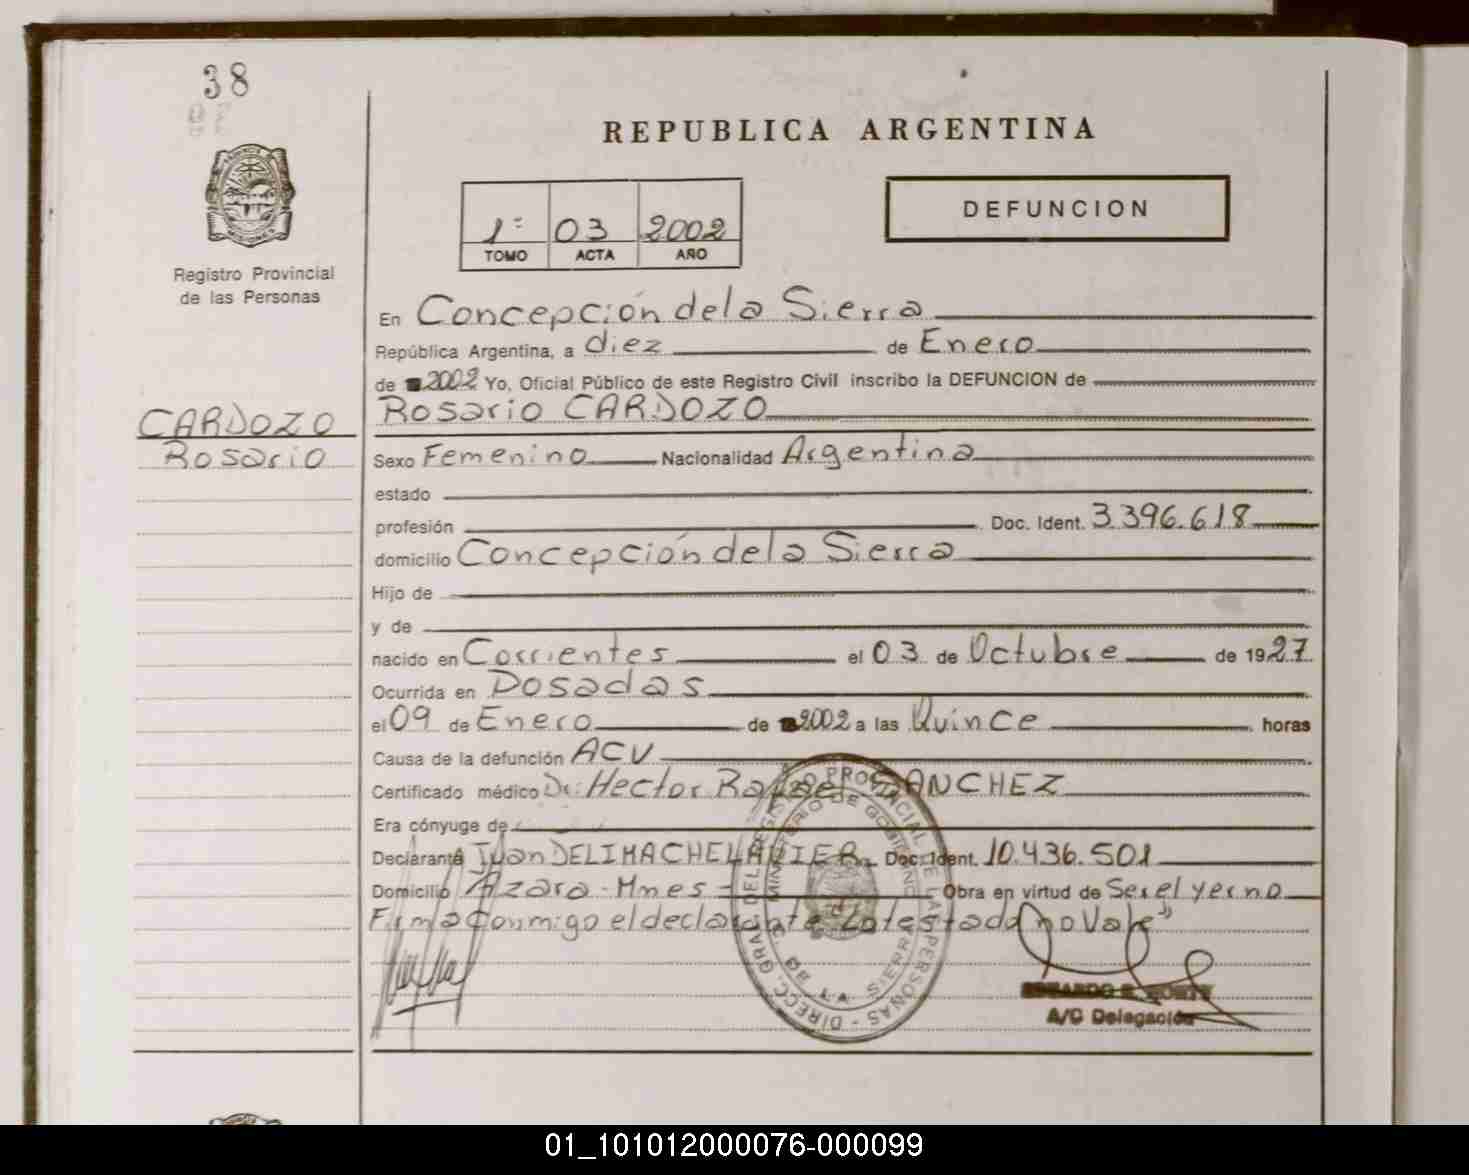 38
REPUBLICA ARGENTINA
1º 03 2002
TOMO ACTA AÑO
DEFUNCION
Registro Provincial
de las Personas
En Concepción de la Sierra
República Argentina, a diez de Enero
de 2002 Yo, Oficial Público de este Registro Civil inscribo la DEFUNCION de
CARDOZO
Rosario
Rosario CARDOZO
Sexo Femenino Nacionalidad Argentina
estado
profesión Doc. Ident. 3.396.618
domicilio Concepción de la Sierra
Hijo de
y de
nacido en Corrientes el 03 de Octubre de 1927
Ocurrida en Posadas
el 09 de Enero de 2002 a las Quince horas
Causa de la defunción ACV
Certificado médico Dr: Hector Rafael SANCHEZ
Era cónyuge de
Declarante Juan DELIMACHELAVIER Doc. Ident. 10.436.501
Domicilio Azara - Mnes - Obra en virtud de Ser el yerno
Firma conmigo el declarante Lo testado no Vale"
DIRECC. GRAL. DEL REGISTRO PROVINCIAL DE LAS PERSONAS
MINISTERIO DE GOBIERNO
C. DE LA SIERRA
A/C Delegación
01_101012000076-000099